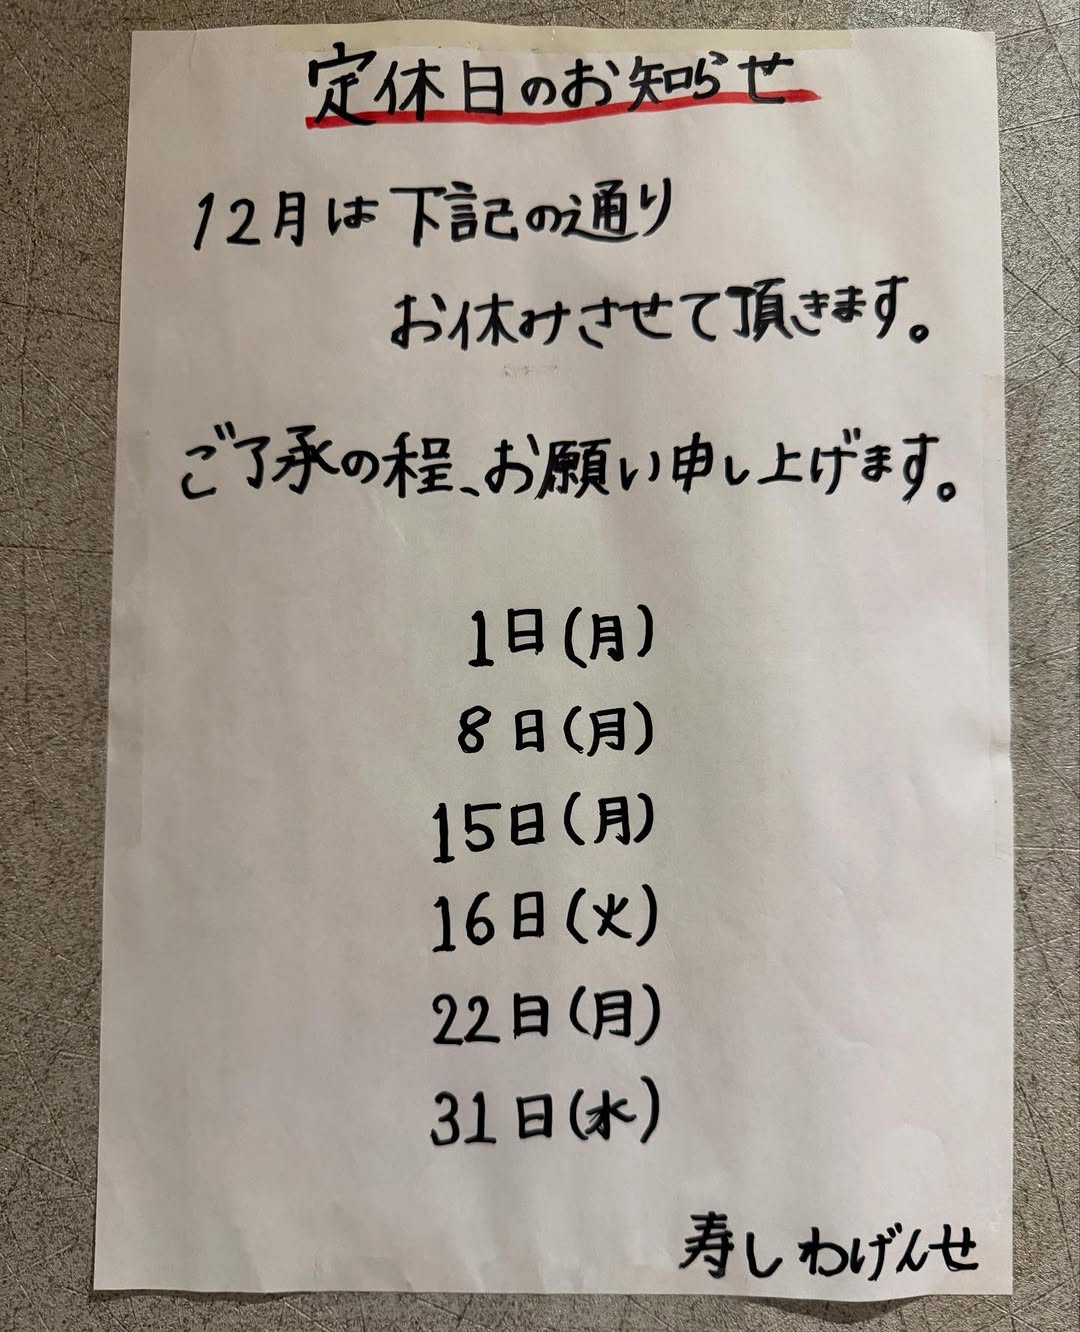 定休日のお知らせ
12月は下記の通り
お休みさせて頂きます。
ご了承の程、お願い申し上げます。
1日(月)
8日(月)
15日(月)
16日(火)
22日(月)
31日(水)
寿しわげんせ